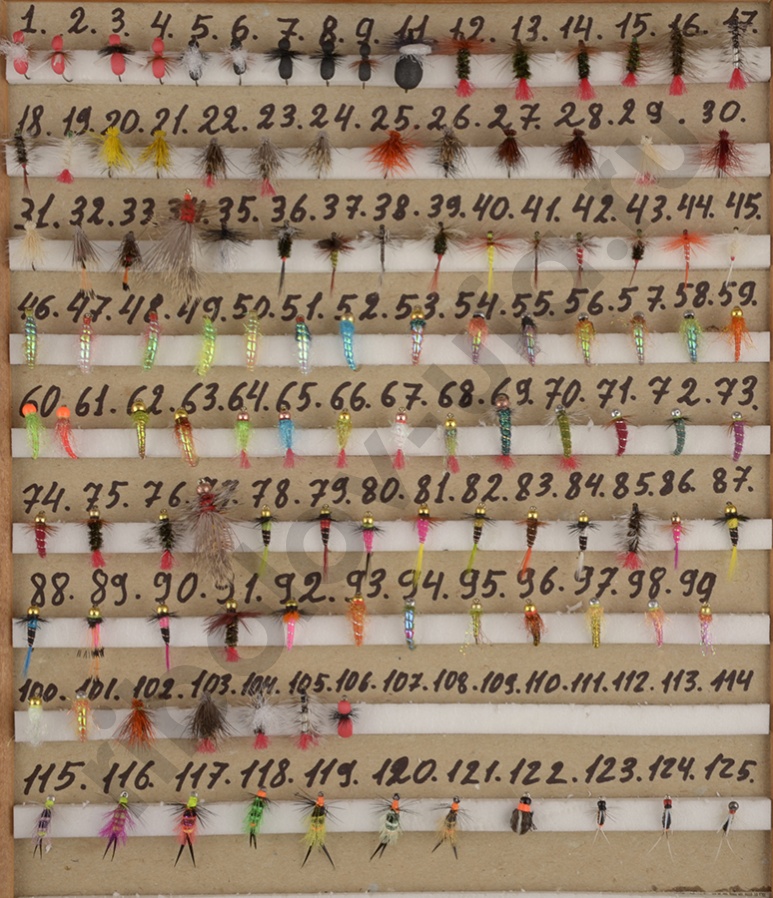 1. 2. 3. 4. 5. 6. 7. 8. 9. 11. 12. 13. 14. 15. 16. 17.
18. 19. 20. 21. 22. 23. 24. 25. 26. 27. 28. 29. 30.
31. 32. 33. 34. 35. 36. 37. 38. 39. 40. 41. 42. 43. 44. 45.
46. 47. 48. 49. 50. 51. 52. 53. 54. 55. 56. 57. 58. 59.
60. 61. 62. 63. 64. 65. 66. 67. 68. 69. 70. 71. 72. 73.
74. 75. 76. 77. 78. 79. 80. 81. 82. 83. 84. 85. 86. 87.
88. 89. 90. 91. 92. 93. 94. 95. 96. 97. 98. 99
100. 101. 102. 103. 104. 105. 106. 107. 108. 109. 110. 111. 112. 113. 114
115. 116. 117. 118. 119. 120. 121. 122. 123. 124. 125.
ribolov-ura.ru